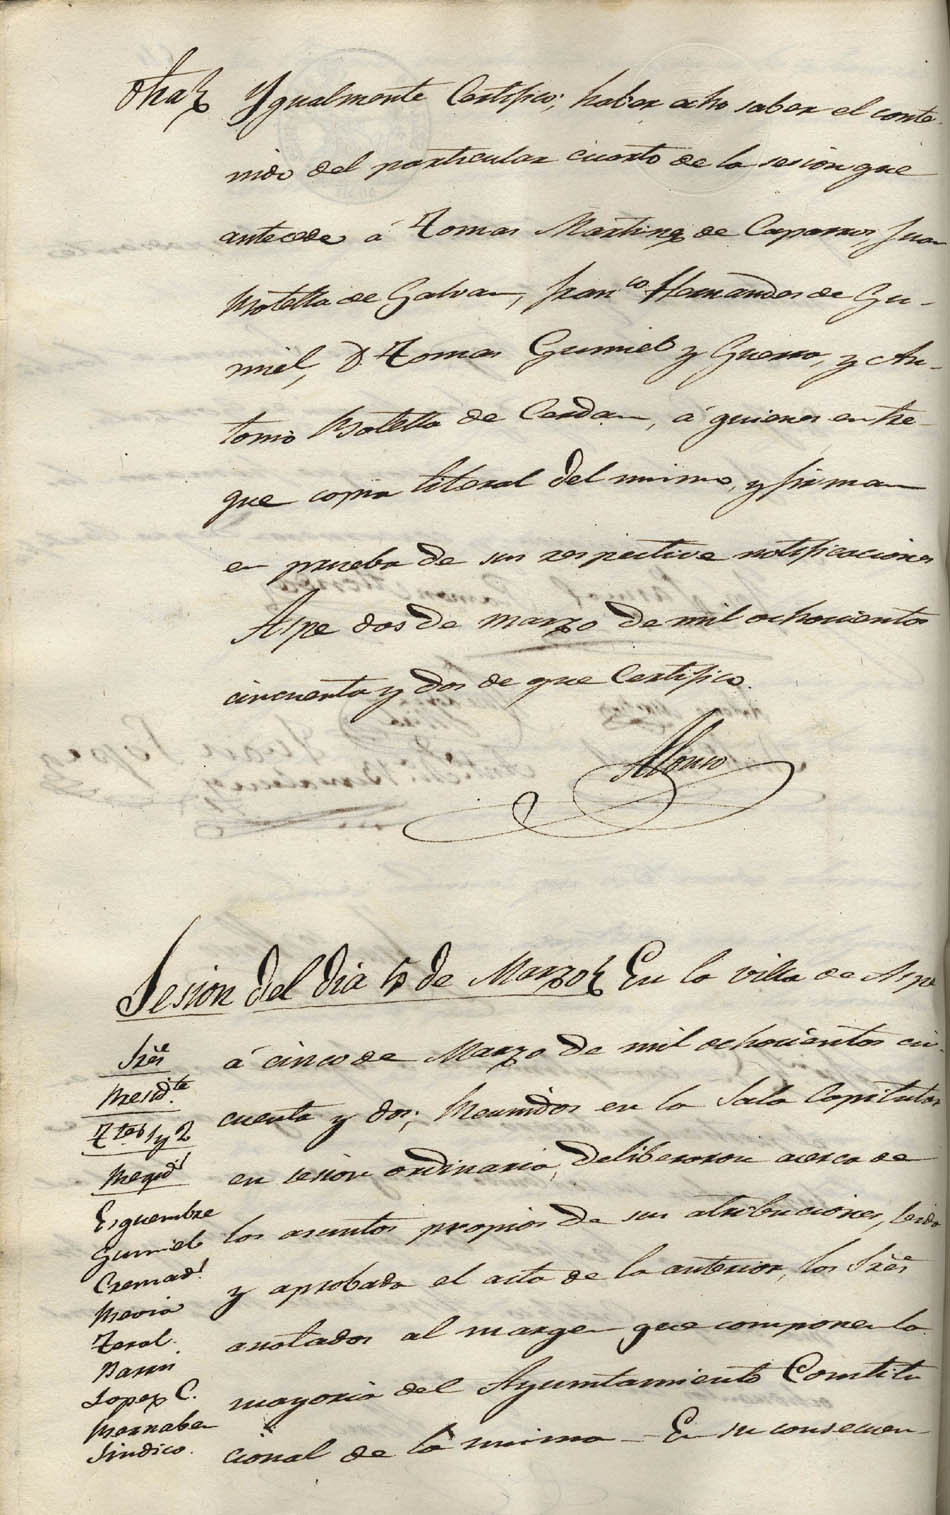 Otra} Ygualmente Certifico; haber echo saber el conte-
nido del particular cuarto de la sesion que
antecede á Tomas Martinez de Caparros, Juan
Botella de Galvan, Fran.co Hernandes de Gu-
miel, D. Tomas Gumiel y Guerra, y An-
tonio Botella de Cerdan, á quienes entre-
gue copia literal del mismo, y firman
en prueba de sus respectivas notificaciones
Aspe dos de Marzo de mil ochocientos
cincuenta y dos de que Certifico.
Alonso
Sesion del dia 5 de Marzo} En la villa de Aspe
á cinco de Marzo de mil ochocientos cin-
cuenta y dos; Reunidos en la Sala Capitular
en sesion ordinaria, deliberaron acerca de
los asuntos propios de sus atribuciones, leida
y aprobada el acta de la anterior, los Sres
anotados al margen que componen la
mayoria del Ayuntamiento Constitu
cional de la misma - En su consecuen-
Sres
Presid.te
T.tes 1 y 2
Regid.s
Esquembre
Gumiel
Cremad.s
Teral.
Lopez C.
Bernabeu
Sindico.